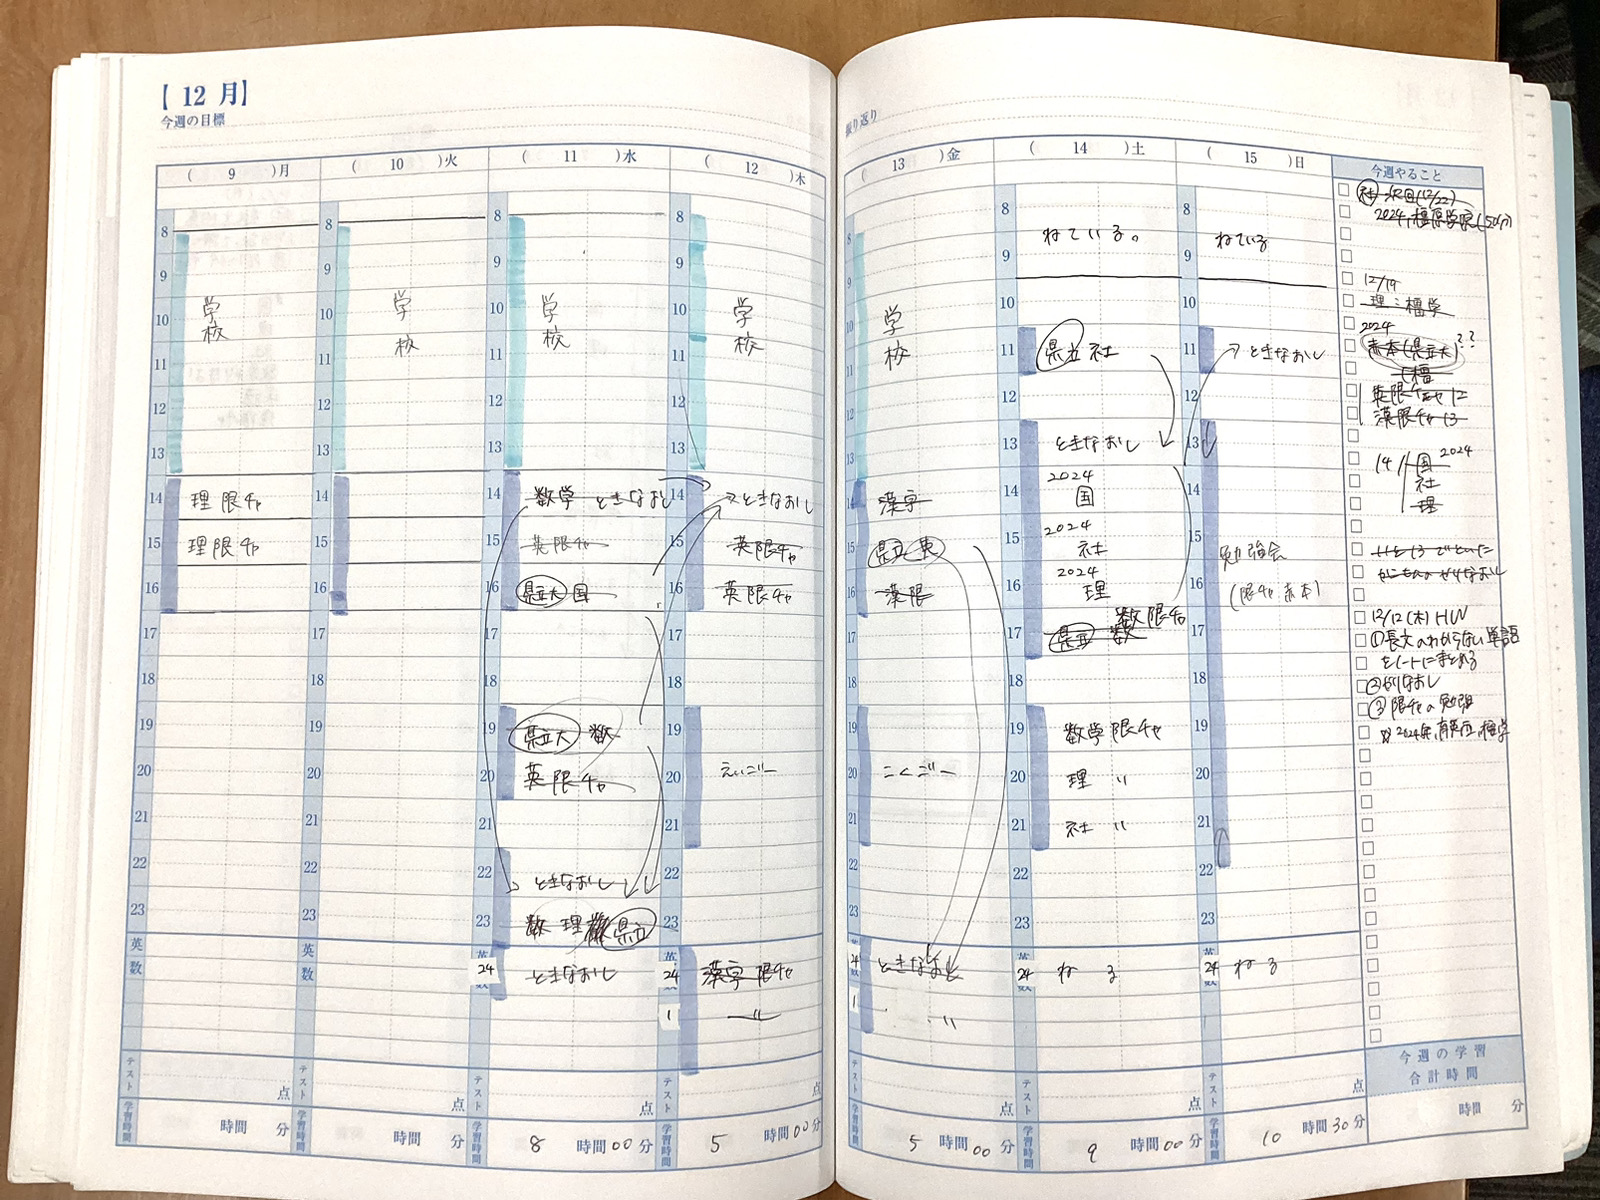 【 12 月】
今週の目標
( 9 )月
8
9
10
11
12
13
14
15
16
17
18
19
20
21
22
23
学校
理 限チャ
理 限チャ
英
数
テスト
点
学習時間
時間 分
( 10 )火
8
9
10
11
12
13
14
15
16
17
18
19
20
21
22
23
学校
英
数
テスト
点
学習時間
時間 分
( 11 )水
8
9
10
11
12
13
14
15
16
17
18
19
20
21
22
23
24
学校
数学 ときなおし
英限チャ
県立大 国
県立大 数
英 限チャ
ときなおし
数 理 県立
ときなおし
テスト
点
学習時間
8 時間 00 分
( 12 )木
8
9
10
11
12
13
14
15
16
17
18
19
20
21
22
23
24
1
学校
→ときなおし
英限チャ
英 限チャ
えいごー
漢字 限チャ
〃
テスト
点
学習時間
5 時間 00 分
振り返り
13 )金
8
9
10
11
12
13
14
15
16
17
18
19
20
21
22
23
24
1
学校
漢字
県立 英
漢限
こくごー
ときなおし
〃
テスト
点
学習時間
5 時間 00 分
( 14 )土
8
9
10
11
12
13
14
15
16
17
18
19
20
21
22
23
24
ねている。
県立 社
ときなおし
2024
国
2024
社
2024
理
数限チャ
県立 数
数学 限チャ
理 〃
社 〃
ねる
テスト
点
学習時間
9 時間 00 分
( 15 )日
8
9
10
11
13
14
15
16
17
18
19
20
21
22
23
24
ねている
→ときなおし
勉強会
(限チャ 赤本)
ねる
テスト
点
学習時間
10 時間 30 分
今週やること
社 次回(12/22)
2024,橿原学院(50分)
12/19
理:橿学
2024
赤本(県立大)??
橿
英限チャ 12
漢限チャ 13
14 国 2024
社
理
12/12(木)HW
①長文のわからない単語
をノートにまとめる
②ときなおし
③限チャの勉強
今週の学習
合計時間
時間 分